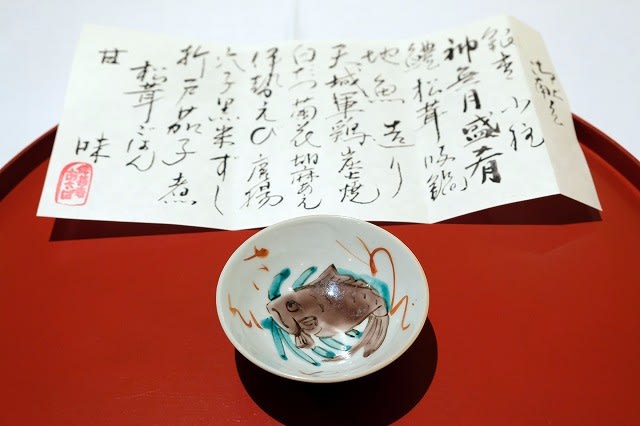 御献立
神無月盛肴
鱧松茸吸鍋
地魚造り
天城軍鶏炭焼
白だつ菊花胡麻あえ
伊勢えび唐揚
穴子黒米ずし
折戸茄子煮
松茸ごはん
甘味